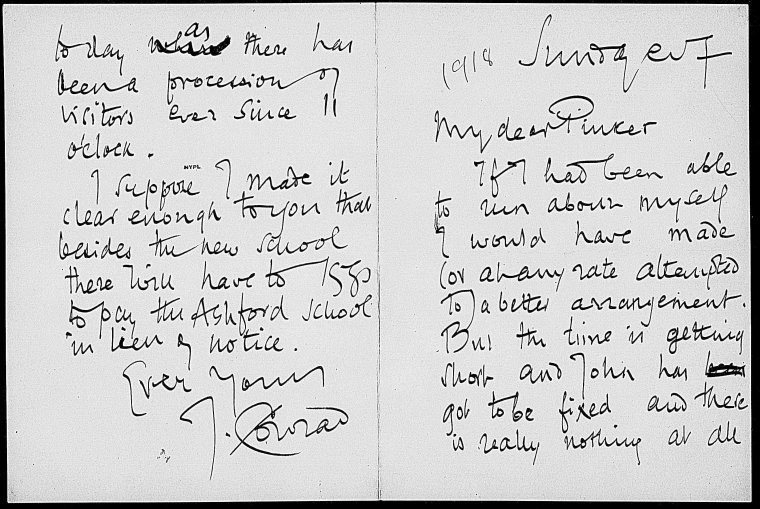 1918 Sunday evg
My dear Pinker
If I had been able
to run about myself
I would have made
(or at any rate attempted
to) a better arrangement.
But the time is getting
short and John has
got to be fixed and there
is really nothing at all
to day as there has
been a procession of
visitors ever since 11
o'clock.
NYPL
I suppose I made it
clear enough to you that
besides the new school
there will have to 15gs
to pay the Ashford school
in lieu of notice.
Ever Yours
J. Conrad